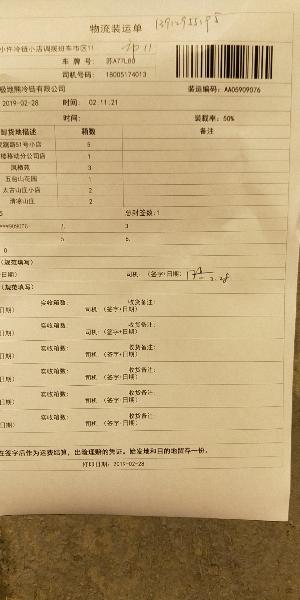 物流装运单
小件冷链小店调拨班车市区11
车 牌 号: 苏A77L80
司机号码: 18005174013
极地熊冷链有限公司
装运编码: AA05909076
2019-02-28 时间: 02 11.21
时间: 装载率: 50%
卸货地描述 箱数 备注
51号小店 5
楼移动分公司店 1
凤栖苑 3
五台山花园 1
太古山庄小店 2
清凉山庄 2
总封签数:1
909076 2. 3
5 5.
0
(规范填写)
日期) 司机 (签字+日期) 2.28
(规范填写)
实收箱数: 收货备注:
日期) 司机 (签字+日期)
实收箱数: 收货备注:
日期) 司机 (签字+日期)
实收箱数: 收货备注:
日期) 司机 (签字+日期)
实收箱数: 收货备注:
日期) 司机 (签字+日期)
实收箱数: 收货备注:
日期) 司机 (签字+日期)
实收箱数: 收货备注:
日期) 司机 (签字+日期)
在签字后作为运费结算, 出险理赔的凭证。始发地和目的地留存一份。
打印日期: 2019-02-28